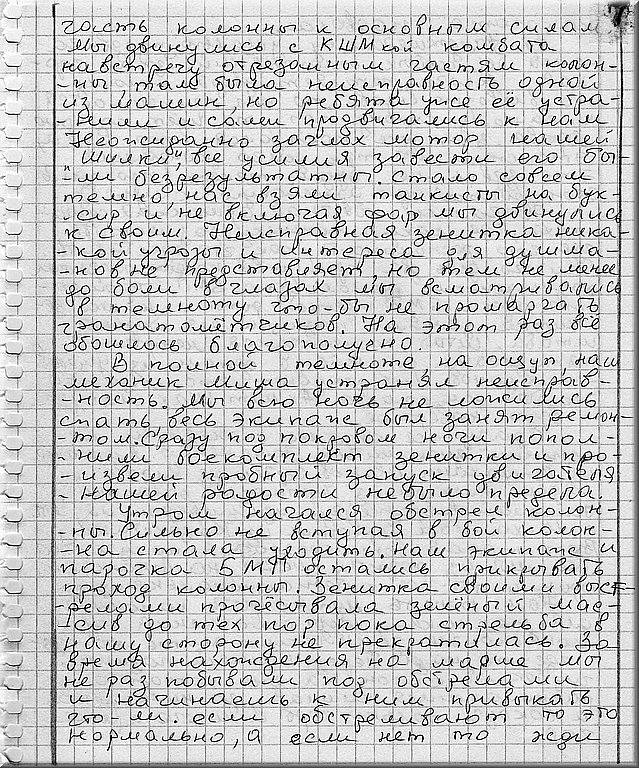 7
часть колонны к основным силам
мы двинулись с КШМкой комбата
навстречу отрезанным частям колон-
-ны там была неисправность одной
из машин, но ребята уже её устра-
-нили и сами продвигались к нам
Неожиданно заглох мотор нашей
"Шилки", все усилия завести его бы-
-ли безрезультатны. Стало совсем
темно, нас взяли танкисты на бук-
-сир и, не включая фар мы двинулись
к своим. Неисправная зенитка ника-
-кой угрозы и интереса для душма-
-нов не представляет, но тем не менее
до боли в глазах мы всматривались
в темноту что-бы не проморгать
гранатомётчиков. На этот раз всё
обошлось благополучно.
В полной темноте, на ощуп, наш
механик Миша устранял неисправ-
-ность. Мы всю ночь не ложились
спать, весь экипаж был занят ремон-
-том. Сразу под покровом ночи попол-
-нили боекомплект зенитки и про-
-извели пробный запуск двигателя
-нашей радости небыло предела.
Утром начался обстрел колон-
-ны. Сильно не вступая в бой колон-
-на стала уходить. Наш экипаж и
парочка БМП остались прикрывать
проход колонны. Зенитка своими выст-
-релами прочёсывала зелёный мас-
-сив до тех пор пока стрельба в
нашу сторону не прекратилась. За
время нахождения на марше мы
не раз побывали под обстрелами
и начинаешь к ним привыкать
что-ли. если обстреливают то это
нормально, а если нет то жди